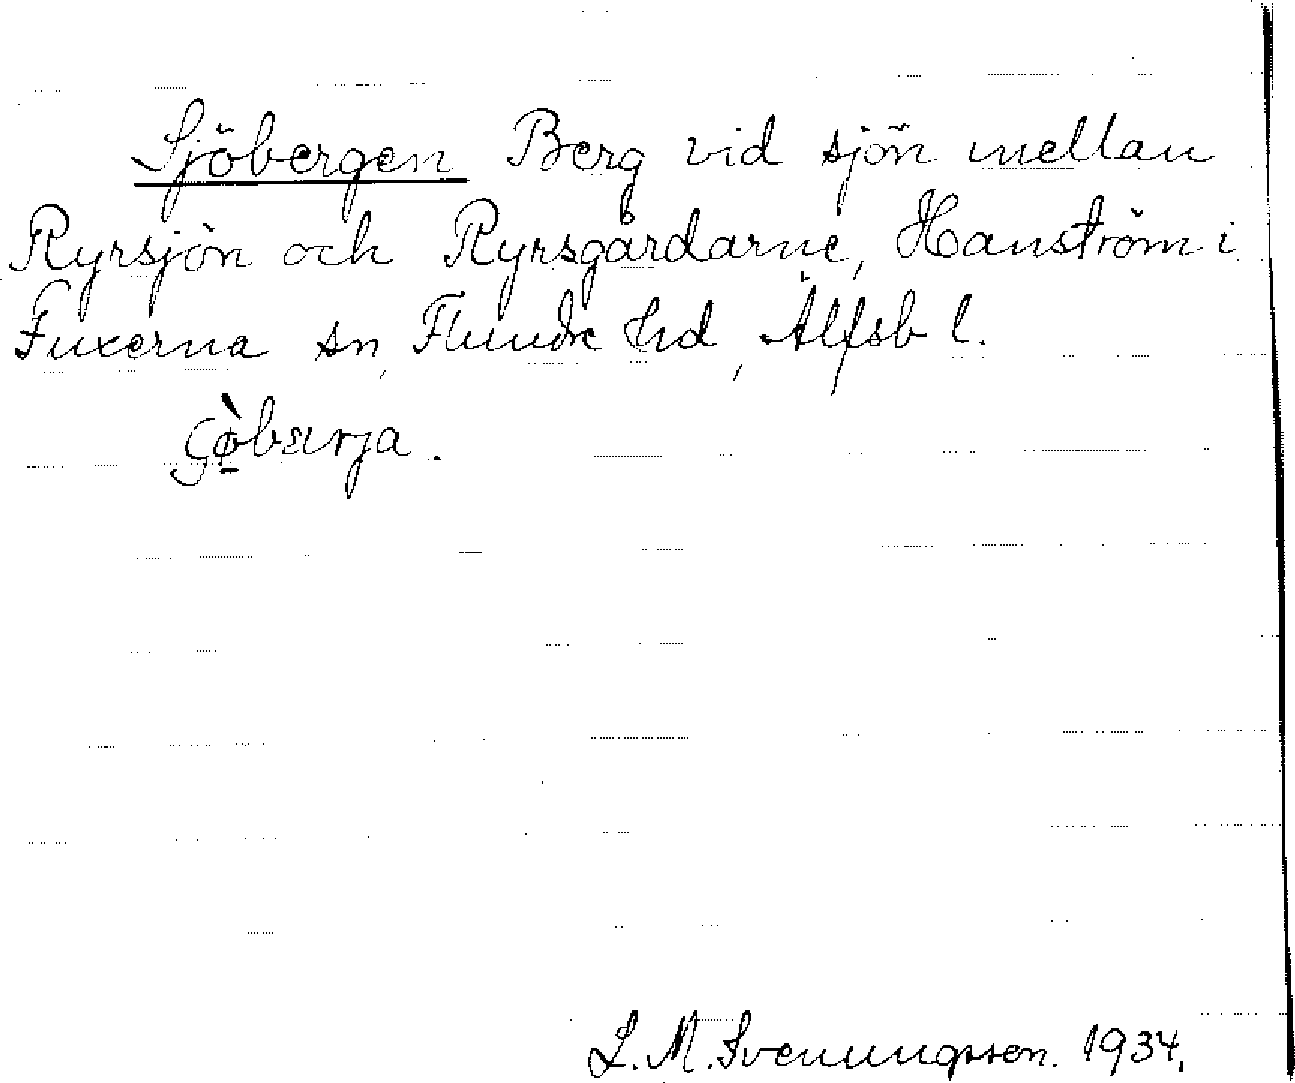 Sjöbergen Berg vid sjön mellan
Ryrsjön och Ryrsgårdarne, Hanström i
Fuxerna sn, Flundre hd, Älfsb l.
ʂø̀bærja.
L. M. Svenungsson. 1934.